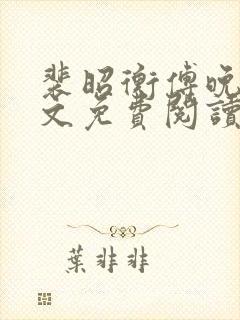 裴昭衡傅晚
文免費閱讀
葉非非